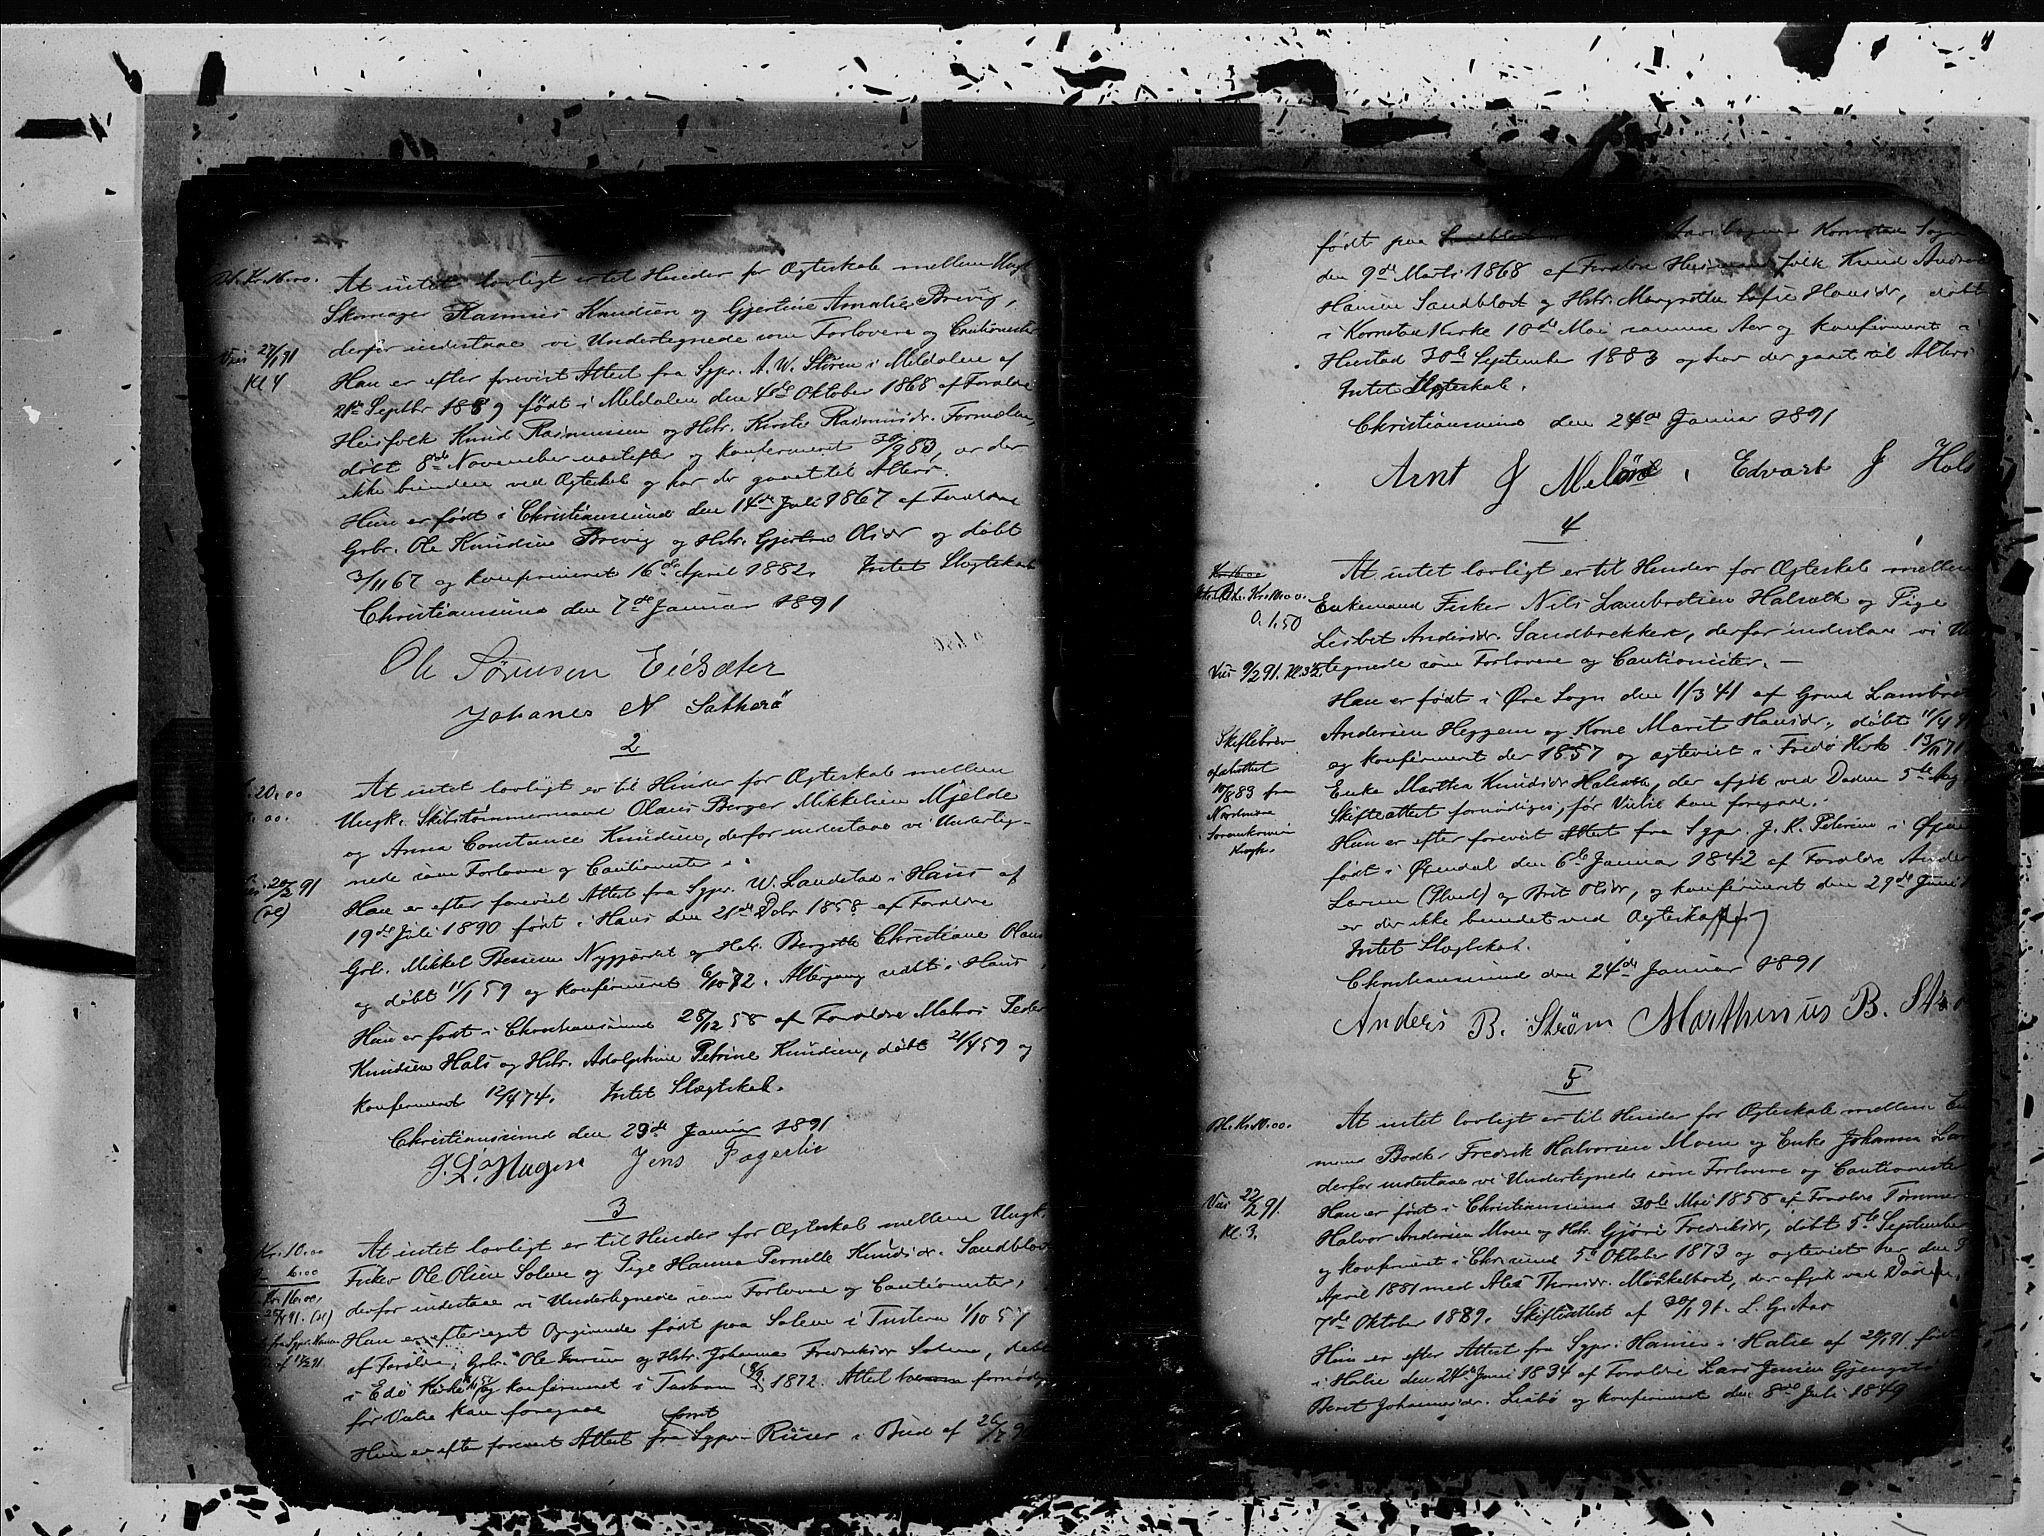 At intet lovligt er til Hinder for Ægteskab mellem Ungk.
Skomager Rasmus Knudsen og Gjertine Amalie Brevig,
derfor indestaae vi Undertegnede som Forlovere og Cautionister
Viet 27/1 91
Kl 4
Han er efter forevist Attest fra Sgpr. A. W. Stören i Meldalen af
21de Septbr 1889 født i Meldalen den 4de Oktober 1868 af Forældre
Husfolk Knud Rasmussen og Hstr. Kirstie Rasmusdr.
døbt 8de November næstefter og konfirmeret 30/9 83, er der
ikke bunden ved Ægteskab og har der gaaet til Alters.
Hun er født i Christianssund den 14de Juli 1867 af Forældre
Grbr. Ole Knudsen Brevig og Hstr. Gjertine Olsdr og døbt
3/11 67 og konfirmeret 16de April 1882. Intet Slægtskab
Christianssund den 7de Januar 1891
Ole Sörensen Eidsæter
Johanes N Sætherö
2
20.00
At intet lovligt er til Hinder for Ægteskab mellem
Ungk. Skibstømmermand Olaus Berger Mikkelsen Mjelde
og Anna Constance Knudsen, derfor indestaae vi Underteg-
nede som Forlovere og Cautionister.
20/2 91
Han er efter forevist Attest fra Sgpr. W. Landstad i Haus af
19de Juli 1890 født i Haus den 21de Dcbr 1858 af Forældre
Grb. Mikkel Bessesen Nygjærdet og Hstr. Christiane Olaus
og døbt 11/1 59 og konfirmeret 6/10 72. Altergang udbt i Haus
Hun er født i Christianssund 28/12 58 af Forældre Matros Peder
Knudsen Hals og Hstr. Adolphine Petrine Knudsen, døbt 21/4 59 og
konfirmeret 12/4 74. Intet Slægtskab.
Christianssund den 29de Januar 1891
J. L. Hagen Jens Fagerlie
3
Kr. 10.00
6.00
Kr. 16.00,
At intet lovligt er til Hinder for Ægteskab mellem Ungk.
Fisker Ole Olsen Solem og Pige Hanna Pernille Knudsdr. Sandblost
derfor indestaae vi Undertegnede som Forlovere og Cautionister,
Han er efter eget Opgivende født paa Solem i Tusteren 1/10 57
af Forældre, Grbr. Ole Iversen og Hstr. Johanna Fredriksdr Solem, døbt
i Edö Kirke og konfirmeret i Tustern 1872. Attest fornødiges
før Vielse kan foregaae
Hun er efter forevist Attest fra Sgpr Riiser i Bud af
født paa Kornstad Sogn
den 9de Marts 1868 af Forældre Husfolk Knud Andreas
Hansen Sandblost og Hstr. Margrethe Sofie Hansdr, døbt
i Kornstad Kirke 10de Mai samme Aar og konfirmeret i
Hustad 30te September 1883 og har der gaaet til Alters
Intet Slægtskab.
Christianssund den 24de Januar 1891
Arnt J Melöve, Edvart J Hols
4
0. 1.50
At intet lovligt er til Hinder for Ægteskab mellem
Enkemand Fisker Nils Lambretsen Halsæth og Pige
Lisbet Andersdr. Sandbrekken, derfor indestaae vi Un
Viet 9/2 91. Kl. 3 1/2.
tegnede som Forlovere og Cautionister. —
Han er født i Øre Sogn den 1/3 41 af Grmd Lambret
Andersen Heggem og Kone Marit Hansdr., døbt 11/4 41
og konfirmeret der 1857 og ægteviet i Fredø Kirke 19/11 71
Skiftebrev
afsluttet
10/8 89 fra
Nordmøre
Sorenskriveri
Krogh.
Enke Martha Knudsdr Halsæth, der afgik ved Døden 5te Aug.
Skifteattest fornødiges, før Vielse kan foregaae.
Hun er efter forevist Attest fra Sgpr. J. K. Petersen i Øxen
født i Øxendal den 6te Januar 1842 af Forældre Anders
Larsen og Brit Olsdr, og konfirmeret den 29de Juni
er der ikke bundet ved Ægteskab
Intet Slægtskab.
Christianssund den 24de Januar 1891
Anders B. Strøm Marthinus B. Strø
5
Bl. Kr. 10.00.
At intet lovligt er til Hinder for Ægteskab mellem Enke
mand Bødk. Fredrik Halvorsen Moen og Enke Johanna Lars
derfor indestaae vi Undertegnede som Forlovere og Cautionister
Viet 22/2 91.
Kl. 3.
Han er født i Christianssund 30te Mai 1858 af Forældre Tømmer
Halvor Andersen Moen og Hstr. Gjøri Fredriksdr, døbt 5te September
og konfirmeret i Chrsund 5te Oktober 1873 og ægteviet her den
April 1881 med Alis Thomsdr. Mörkelbost, der afgik ved Døden,
7de Oktober 1889. Skifteattest af 20/1 91. L. G. Aas
Hun er efter Attest fra Sgpr. Hansen i Halse af 29/1 91 født
i Halse den 24de Juni 1834 af Forældre Lars Jensen Gjengstö
Beret Johannesdr. Lisbö og konfirmeret den 8de Juli 1849